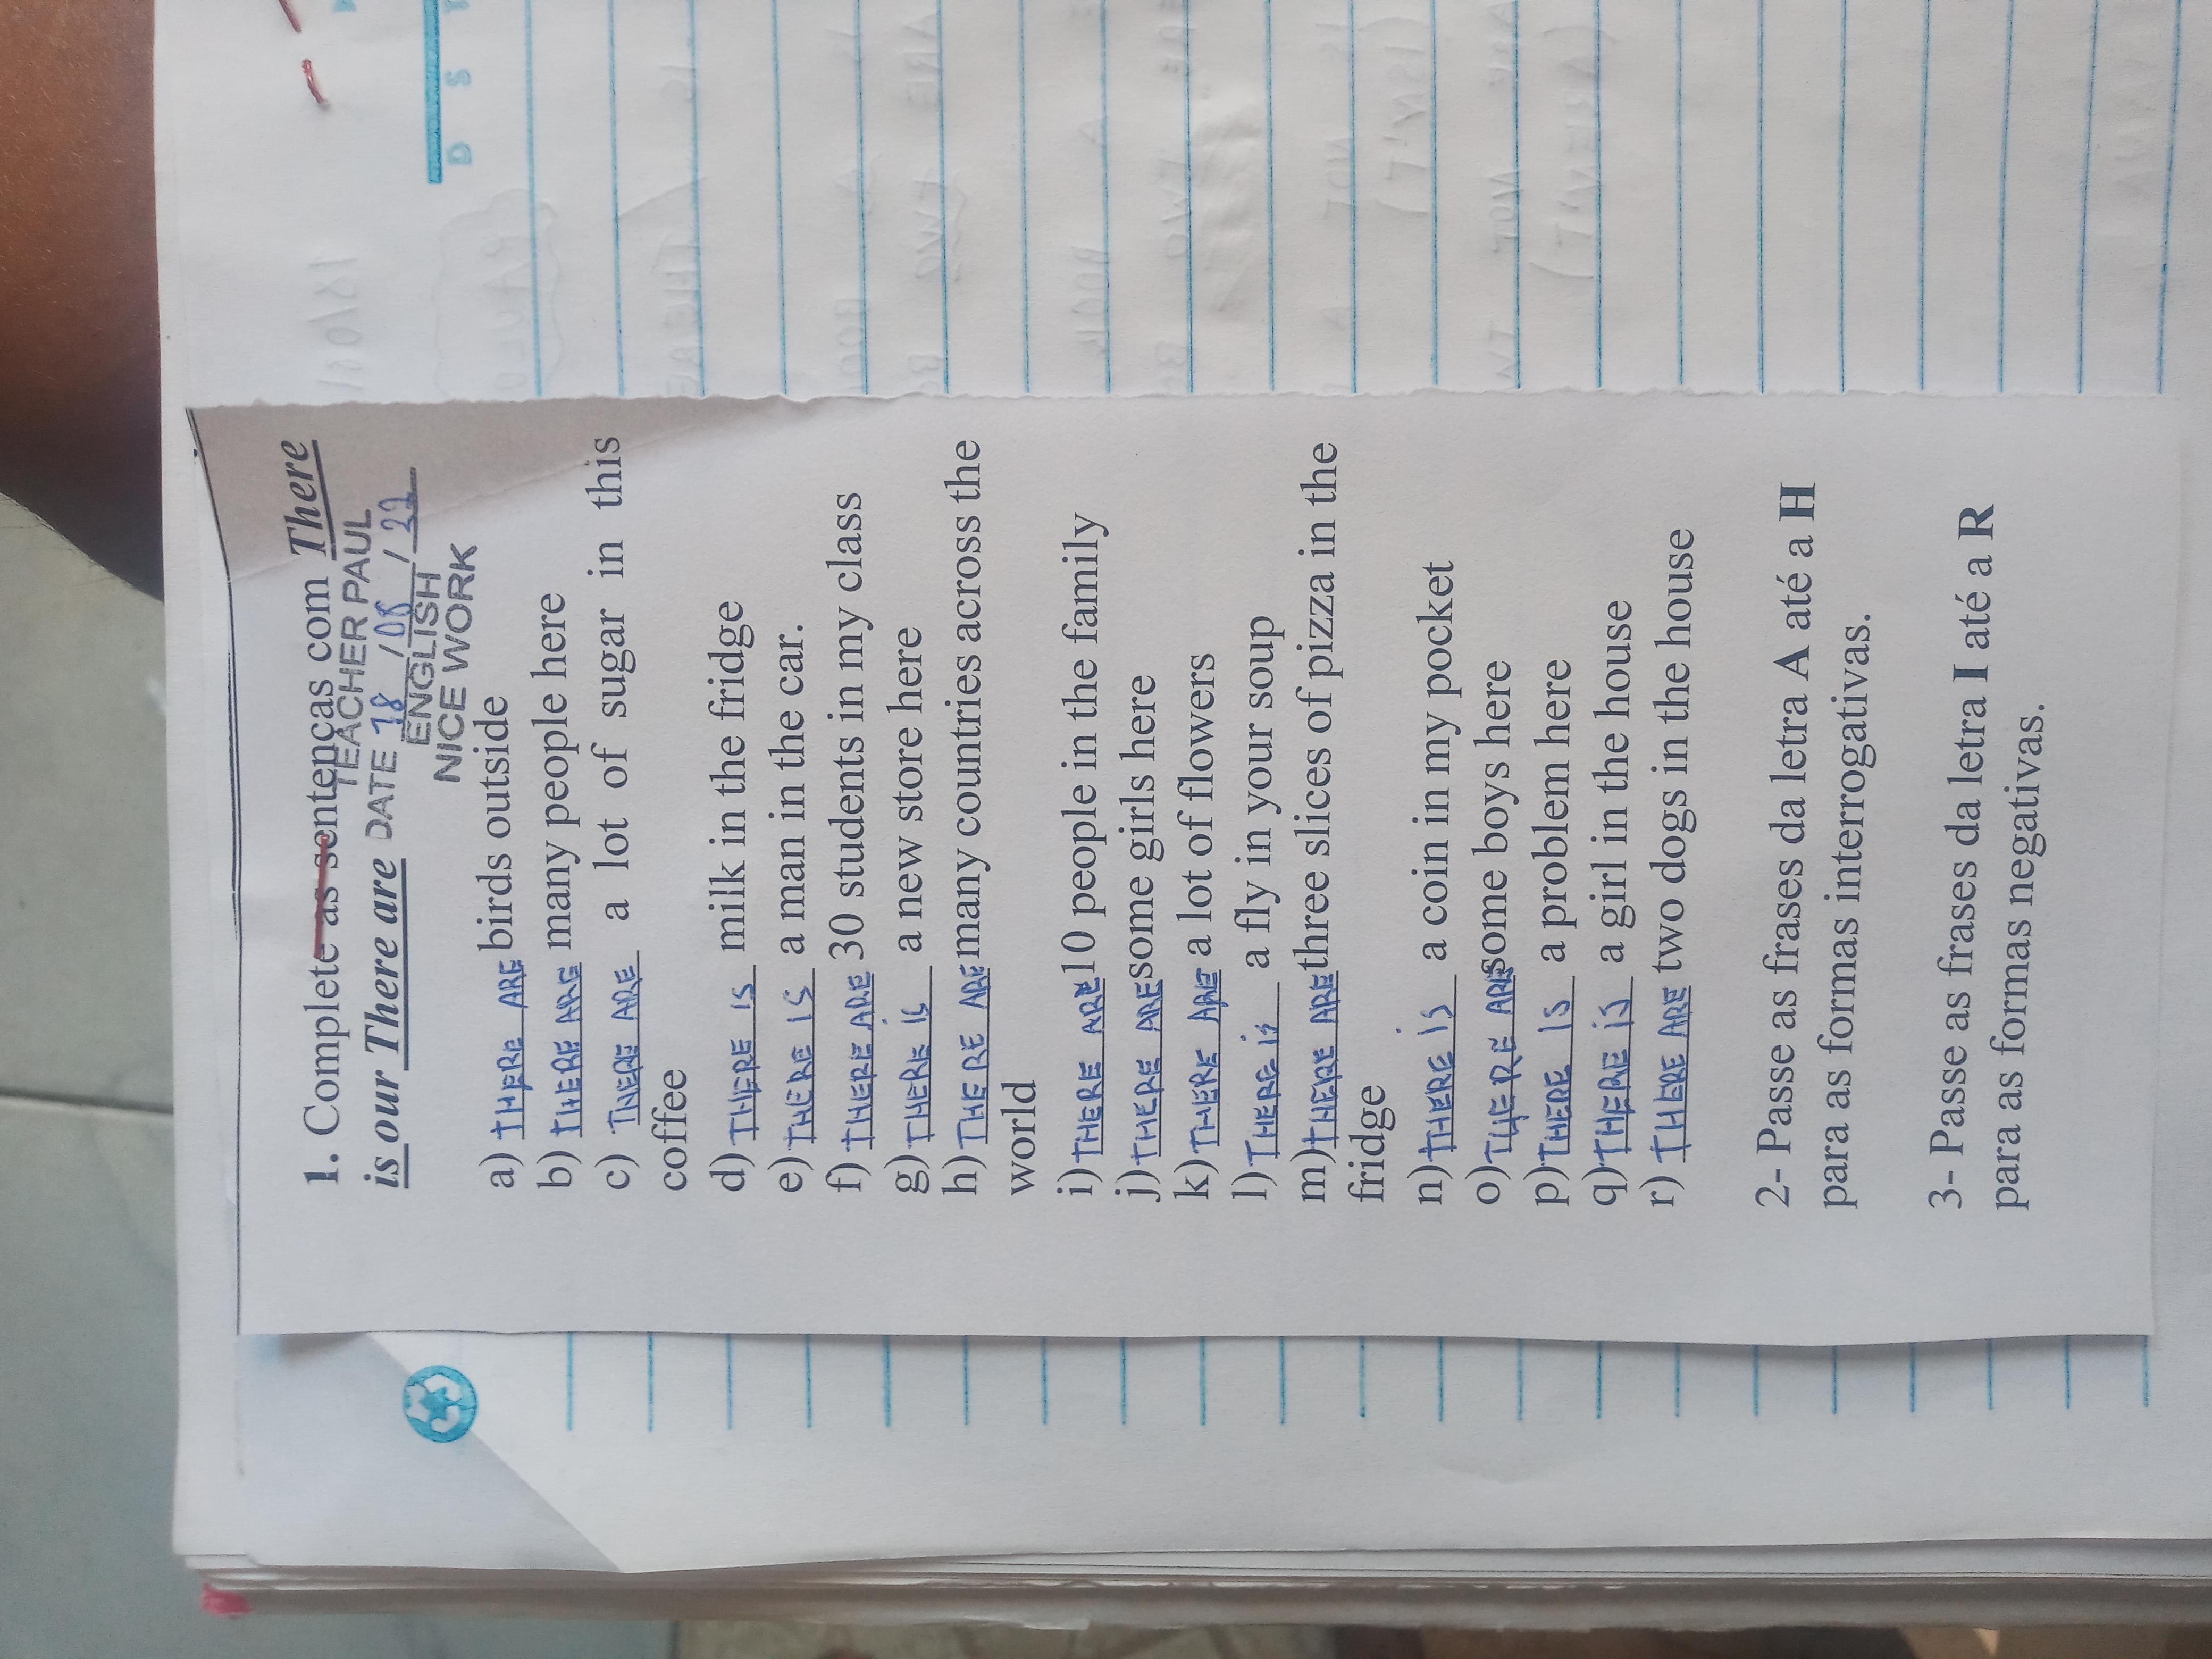 1. Complete as sentenças com There
is our There are
TEACHER PAUL
DATE 18 / 08 / 22
ENGLISH
NICE WORK
a) THERE ARE birds outside
b) THERE ARE many people here
c) THERE ARE a lot of sugar in this
coffee
d) THERE IS milk in the fridge
e) THERE IS a man in the car.
f) THERE ARE 30 students in my class
g) THERE IS a new store here
h) THERE ARE many countries across the
world
i) THERE ARE 10 people in the family
j) THERE ARE some girls here
k) THERE ARE a lot of flowers
l) THERE IS a fly in your soup
m) THERE ARE three slices of pizza in the
fridge
n) THERE IS a coin in my pocket
o) THERE ARE some boys here
p) THERE IS a problem here
q) THERE IS a girl in the house
r) THERE ARE two dogs in the house
2- Passe as frases da letra A até a H
para as formas interrogativas.
3- Passe as frases da letra I até a R
para as formas negativas.
D S